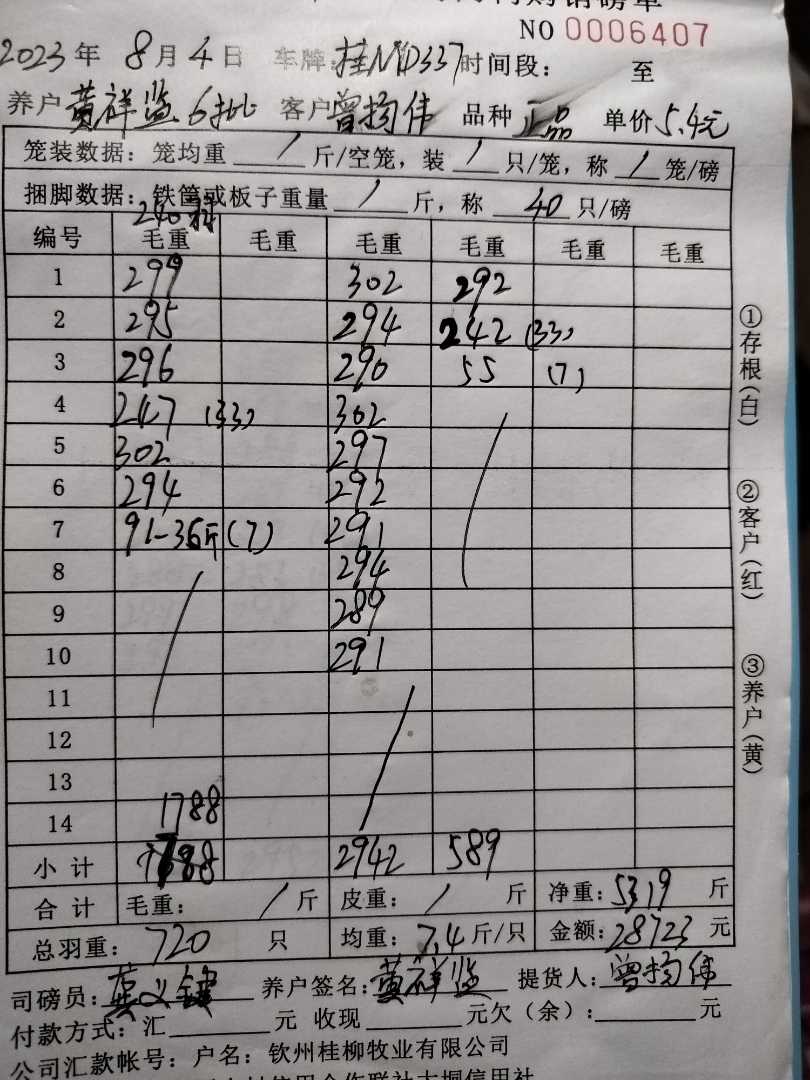 NO 0006407
2023年 8月4日 车牌:桂N1D337 时间段: 至
养户 黄祥监 6批 客户 曾扬伟 品种 正品 单价 5.4元
笼装数据: 笼均重 / 斤/空笼, 装 / 只/笼, 称 / 笼/磅
捆脚数据: 铁筐或板子重量 / 斤, 称 40 只/磅
编号 毛重 毛重 毛重 毛重 毛重 毛重
1 299 302 292
2 295 294 242 (33)
3 296 290 55 (7)
4 247 (33) 302
5 302 297
6 294 292
7 91-36斤(7) 291
8 294
9 289
10 291
11
12
13
14 1788
小计 2942 589
合计 毛重: / 斤 皮重: / 斤 净重: 5319 斤
总羽重: 720 只 均重: 7.4 斤/只 金额: 28723 元
司磅员: 养户签名: 黄祥监 提货人: 曾扬伟
付款方式: 汇 元 收现 元欠(余): 元
公司汇款帐号: 户名: 钦州桂柳牧业有限公司
①存根(白)
②客户(红)
③养户(黄)